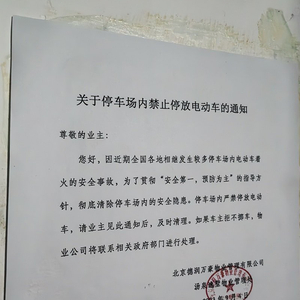 关于停车场内禁止停放电动车的通知
尊敬的业主：
您好，因近期全国各地相继发生较多停车场内电动车着
火的安全事故，为了贯彻“安全第一，预防为主”的指导方
针，彻底清除停车场内的安全隐患。停车场内严禁停放电动
车，请业主见此通知后，及时清理。如果车主拒不挪车，物
业公司将联系相关政府部门进行处理。
北京德润万豪物业管理有限公司
物业管理处